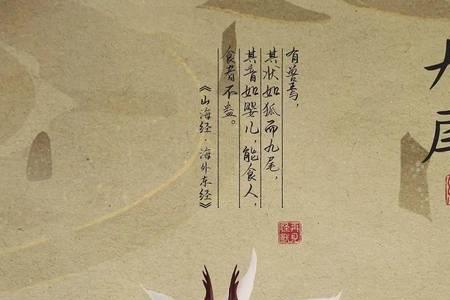 有兽焉，
其状如狐而九尾，
其音如婴儿，能食人，
食者不蛊。
《山海经·海外东经》
九尾
再见